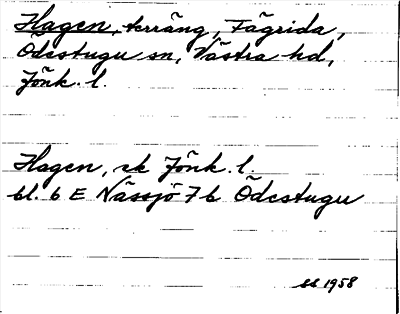 Hagen, terräng, Fågrida,
Ödestugu sn, Västra hd,
Jönk. l.
Hagen, sk Jönk. l.
bl. 6 E Nässjö 7 b Ödestugu
1958